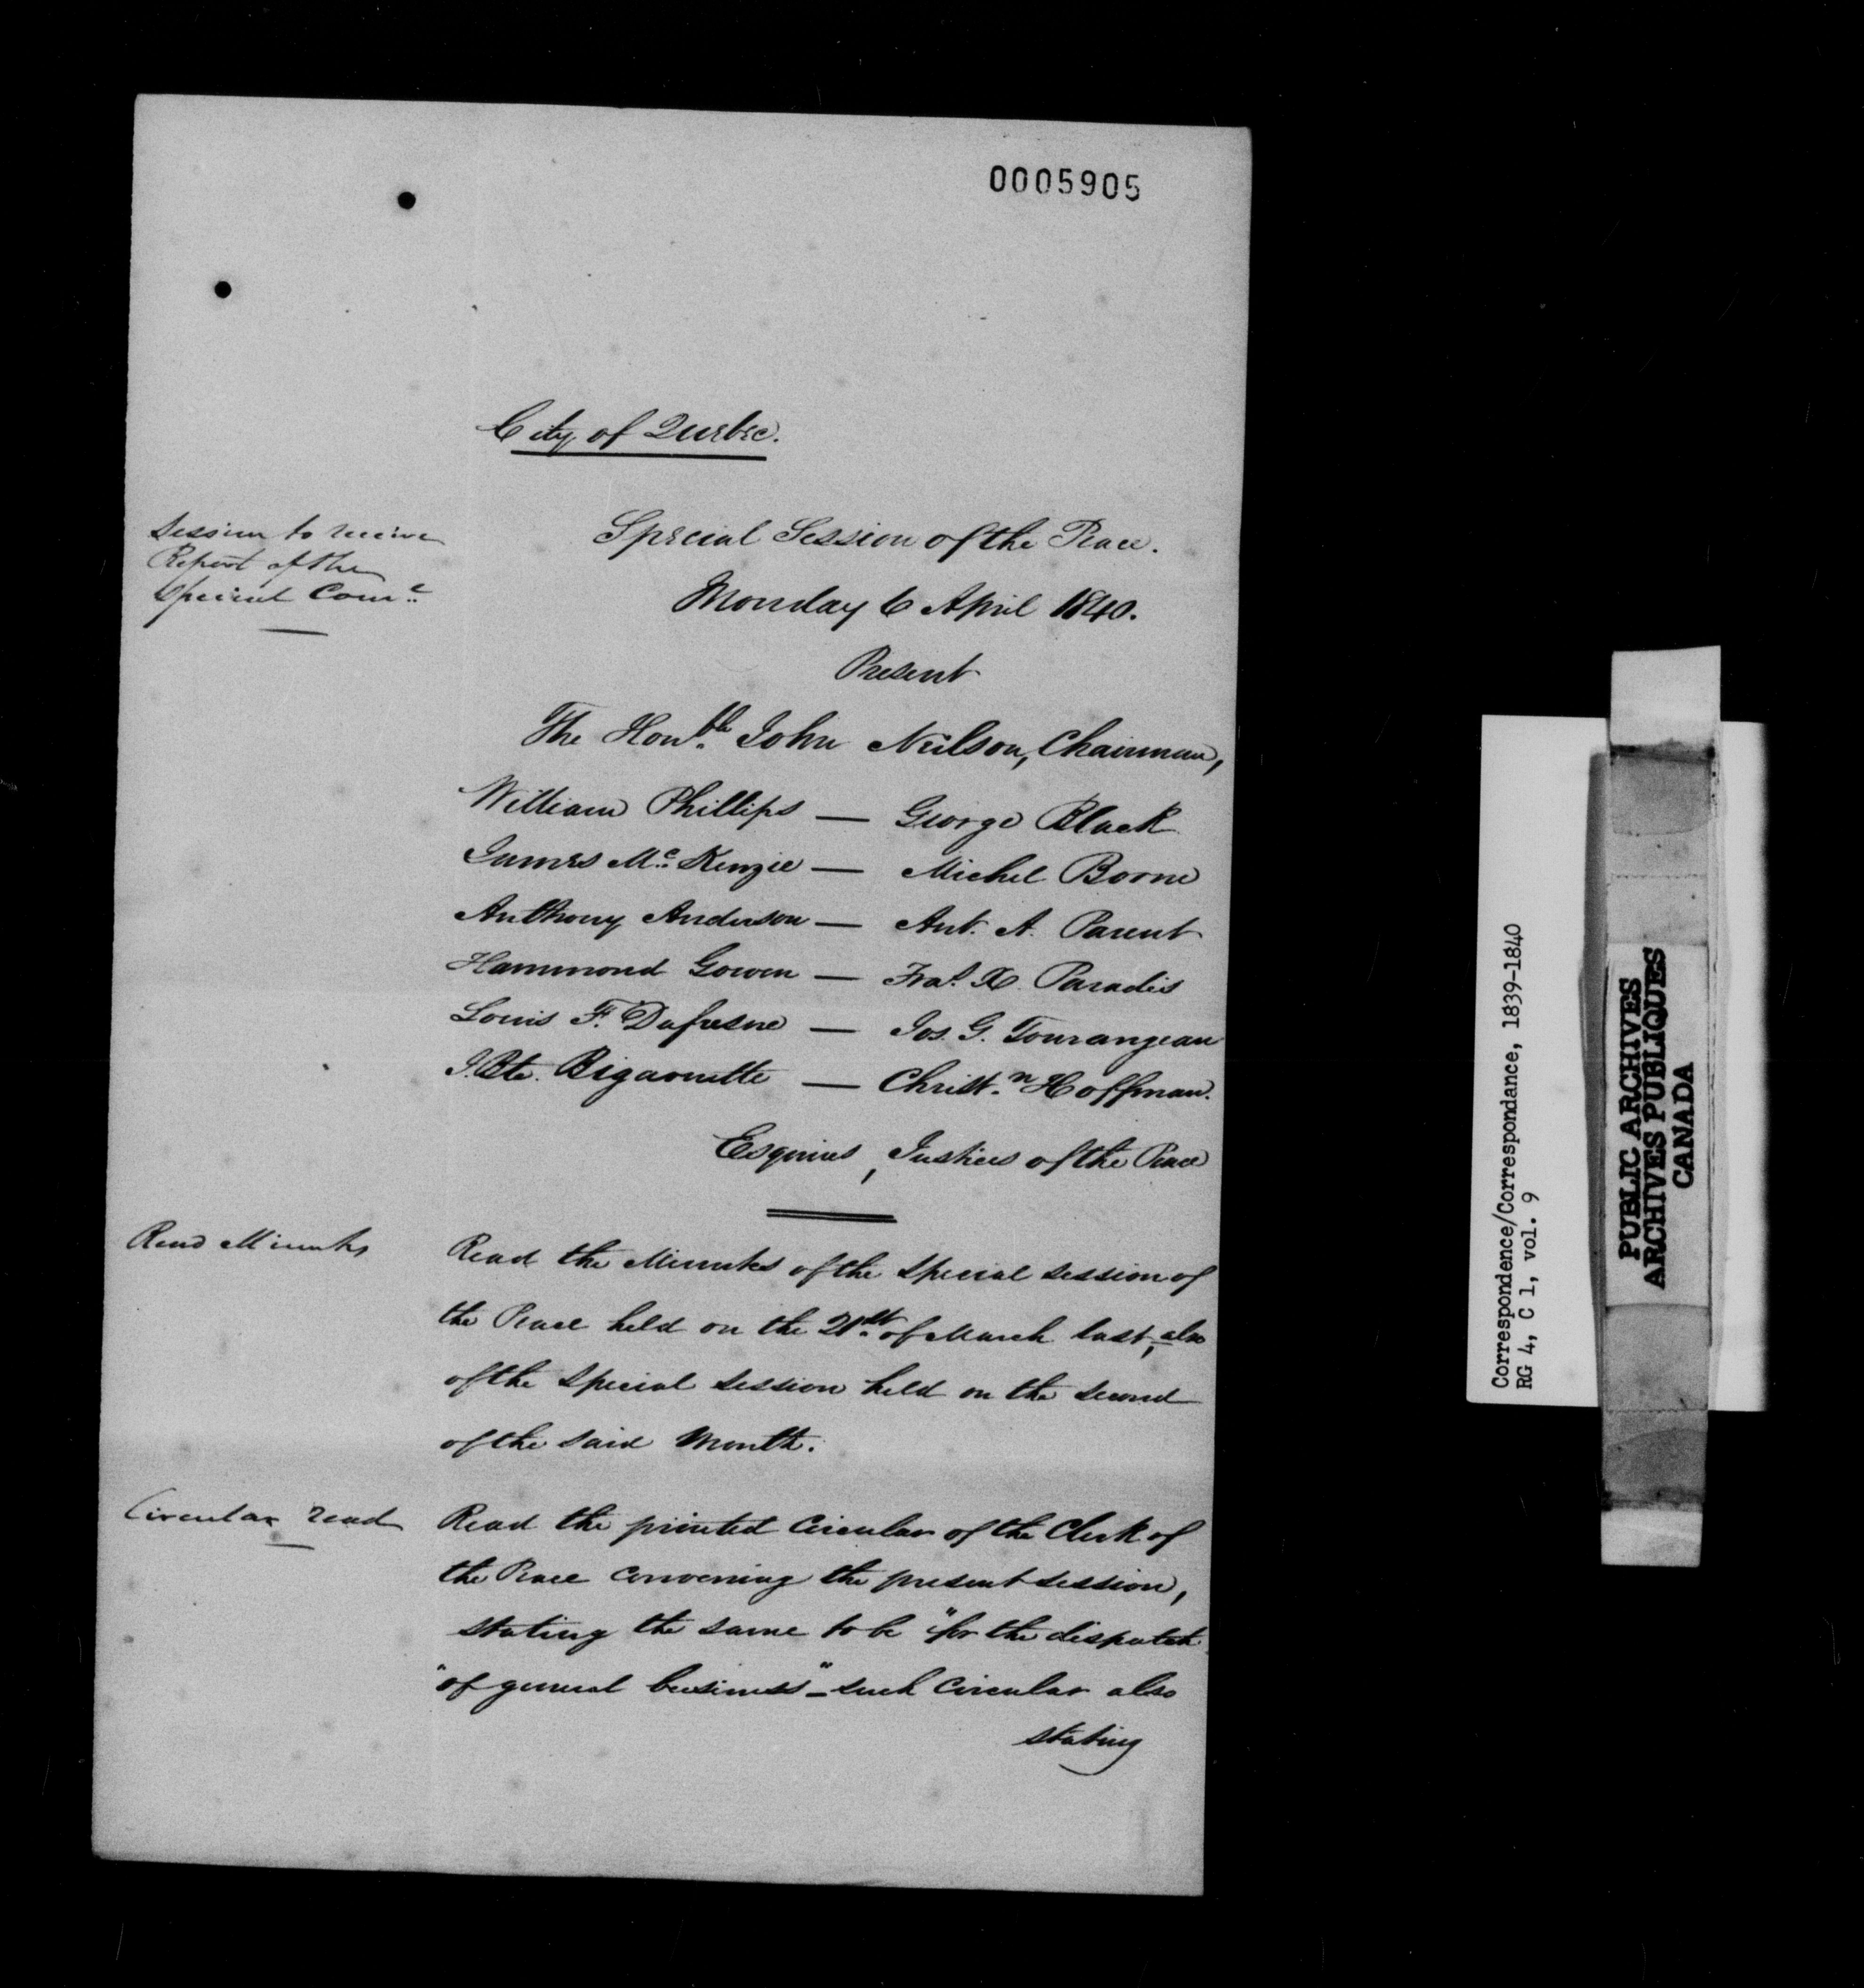 0005905
City of Quebec.
Session to receive
Report of the
Special Come.
Special Session of the Peace.
Monday 6 April 1840.
Present
The Honble. John Neilson, Chairman,
William Phillips — George Black
James Mc. Kenzie — Michel Borne
Anthony Anderson — Ant. A. Parent
Hammond Gowen — Fras. X. Paradis
Louis F. Dufresne — Jos. G. Tourangeau
J. Bte. Bigaouette — Christn. Hoffman.
Esquires, Justices of the Peace
Read Minutes
Read the Minutes of the Special session of
the Peace held on the 21st. of March last, also
of the Special session held on the second
of the said Month.
Circular read
Read the printed Circular of the Clerk of
the Peace convening the present session,
stating the same to be "for the dispatch
"of general business" - such Circular also
stating
Correspondence/Correspondance, 1839-1840
RG 4, C 1, vol. 9
PUBLIC ARCHIVES
ARCHIVES PUBLIQUES
CANADA